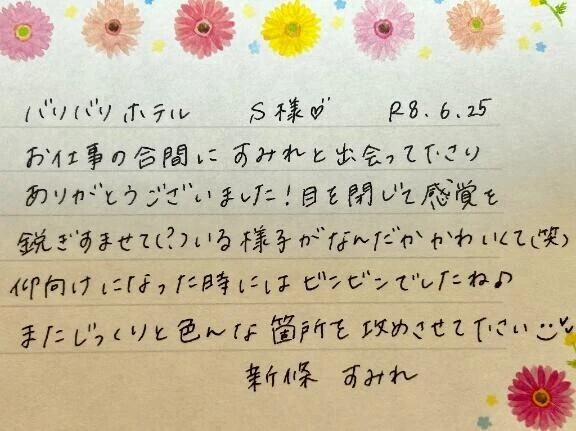 バリバリホテル S様♡ R8.6.25
お仕事の合間にすみれと出会って下さり
ありがとうございました！目を閉じて感覚を
鋭ぎすませて(？)いる様子がなんだかかわいくて(笑)
仰向けになった時にはビンビンでしたね♪
またじっくりと色んな箇所を攻めさせて下さい
新條 すみれ